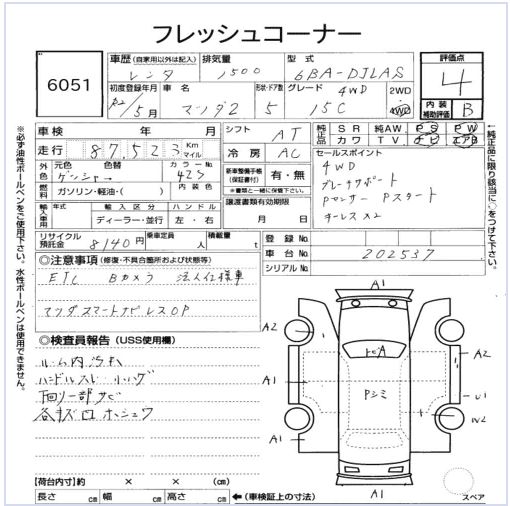 フレッシュコーナー
6051
車歴 (自家用以外は記入) 排気量 型式 評価点
レンタ 1500 6BA-DJLAS 4
初度登録年月 車名 形状・ドア数 グレード 4WD 2WD 内装補助評価 B
R2 / 5月 マツダ2 5 15C 4WD
車検 年 月 シフト AT 純正品 SR 純AW PS PW
カワ TV ナビ エアB
走行 87,523 Km マイル 冷房 AC
セールスポイント
外色 元色 色替 カラーNo. 新車整備手帳(保証書付) 有・無
ゲンシャー 42S ※書類と一緒に保管下さい。
燃料 ガソリン・軽油・( ) 内装色 譲渡書類有効期限
輸入車用 年式 輸入区分 ハンドル 月 日
ディーラー・並行 左・右
4WD
ブレーキサポート
Pセンサー Pスタート
キーレス×2
リサイクル預託金 8140円 乗車定員 人 積載量 t
登録No.
車台No. 202537
シリアルNo.
◎注意事項 (修復・不具合箇所および状態等)
ETC Bカメラ 法人仕様車
マツダスマートナビ レスOP
◎検査員報告 (USS使用欄)
ルーム内汚れ
ハンドルスレ
下回り一部サビ
各キズ
A1
A2
A2
A1
Pシミ
U1
W2
A1
A1
スペア
【荷台内寸】約 × × (cm)
長さ cm 幅 cm 高さ cm ←(車検証上の寸法)
※必ず油性ボールペンをご使用下さい。水性ボールペンは使用できません。
←純正品に限り該当に○をつけて下さい。